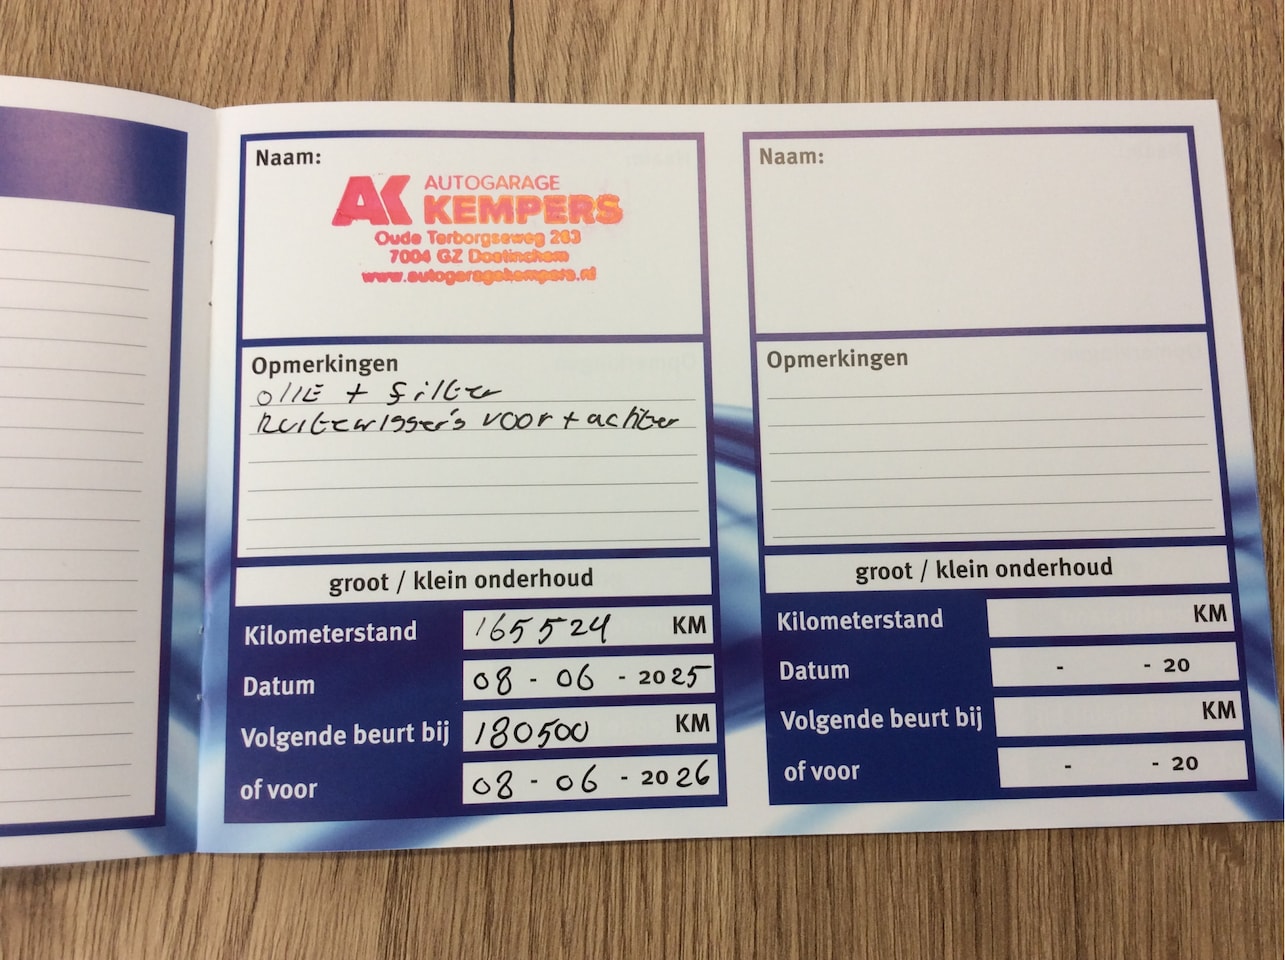 Naam:
AK AUTOGARAGE
KEMPERS
Oude Terborgseweg 263
7004 GZ Doetinchem
www.autogaragekempers.nl
Opmerkingen
olie + filter
Ruitewisser's voor + achter
groot / klein onderhoud
Kilometerstand 165524 KM
Datum 08 - 06 - 2025
Volgende beurt bij 180500 KM
of voor 08 - 06 - 2026
Naam:
Opmerkingen
groot / klein onderhoud
Kilometerstand KM
Datum - - 20
Volgende beurt bij KM
of voor - - 20